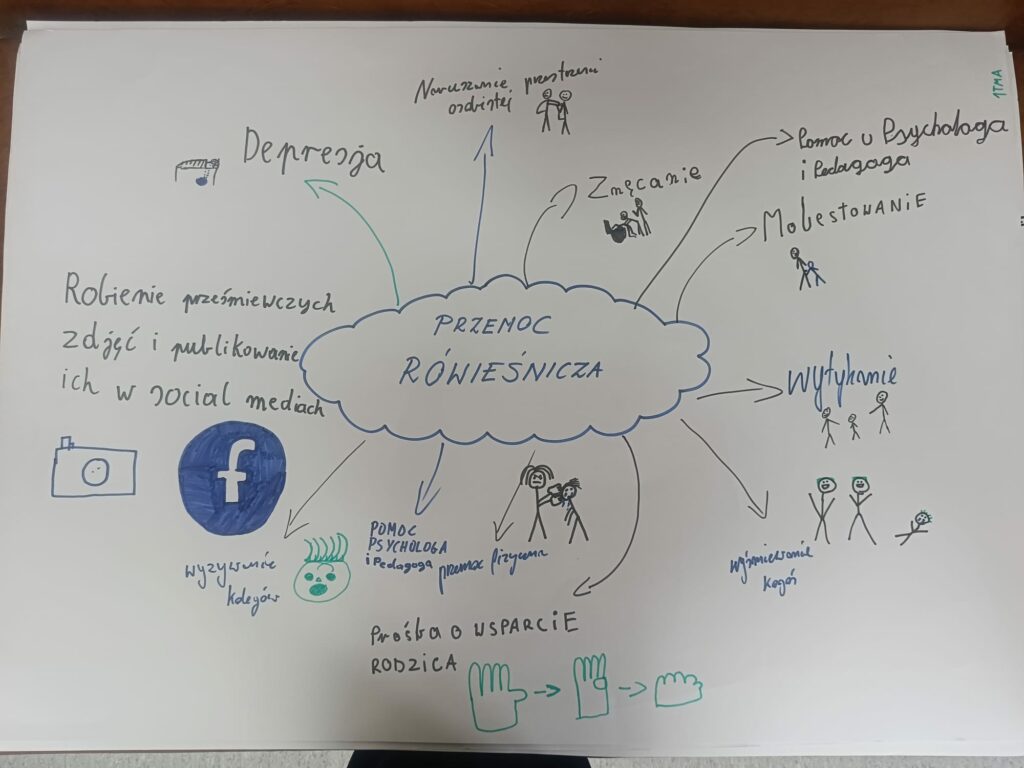 1TMA
Naruszanie przestrzeni
osobistej
Depresja
Pomoc u Psychologa
i Pedagoga
Znęcanie
MOLESTOWANIE
Robienie prześmiewczych
zdjęć i publikowanie
ich w social mediach
PRZEMOC
RÓWIEŚNICZA
wytykanie
f
POMOC
PSYCHOLOGA
i Pedagoga
przemoc fizyczna
wyzywanie
kolegów
wyśmiewanie
kogoś
Prośba o WSPARCIE
RODZICA